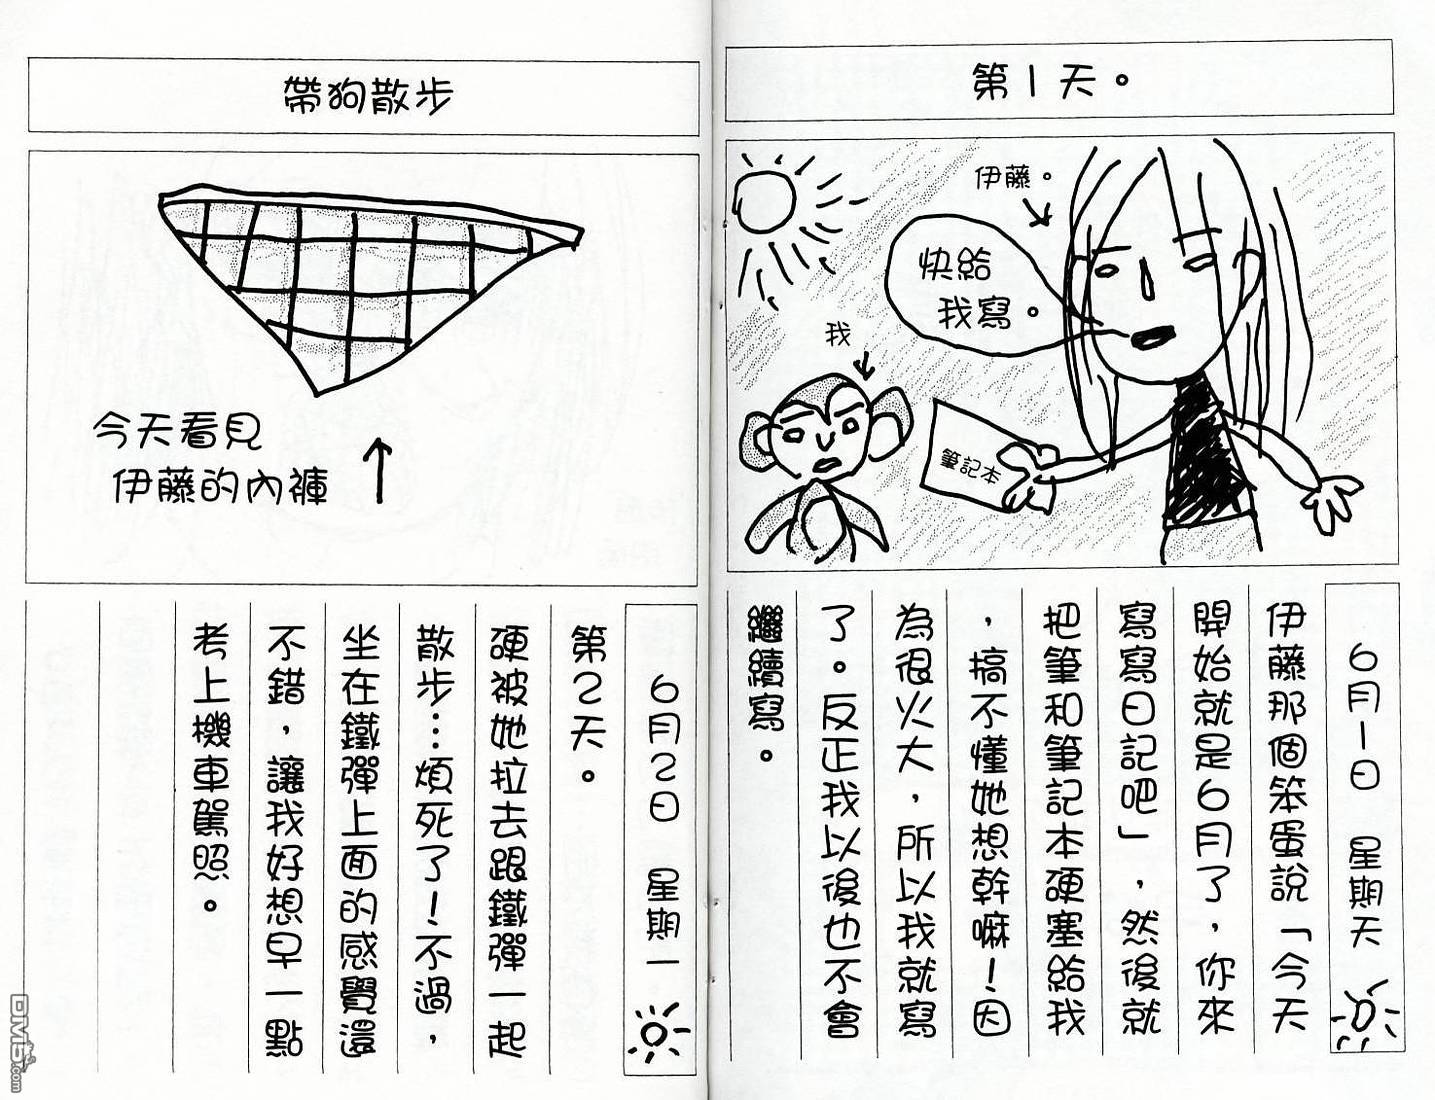 第1天。
伊藤。
快給
我寫。
我
筆記本
6月1日 星期天
伊藤那個笨蛋說「今天
開始就是6月了，你來
寫寫日記吧」，然後就
把筆和筆記本硬塞給我
，搞不懂她想幹嘛！因
為很火大，所以我就寫
了。反正我以後也不會
繼續寫。
帶狗散步
今天看見
伊藤的內褲
6月2日 星期一
第2天。
硬被她拉去跟鐵彈一起
散步…煩死了！不過，
坐在鐵彈上面的感覺還
不錯，讓我好想早一點
考上機車駕照。
DM5.com